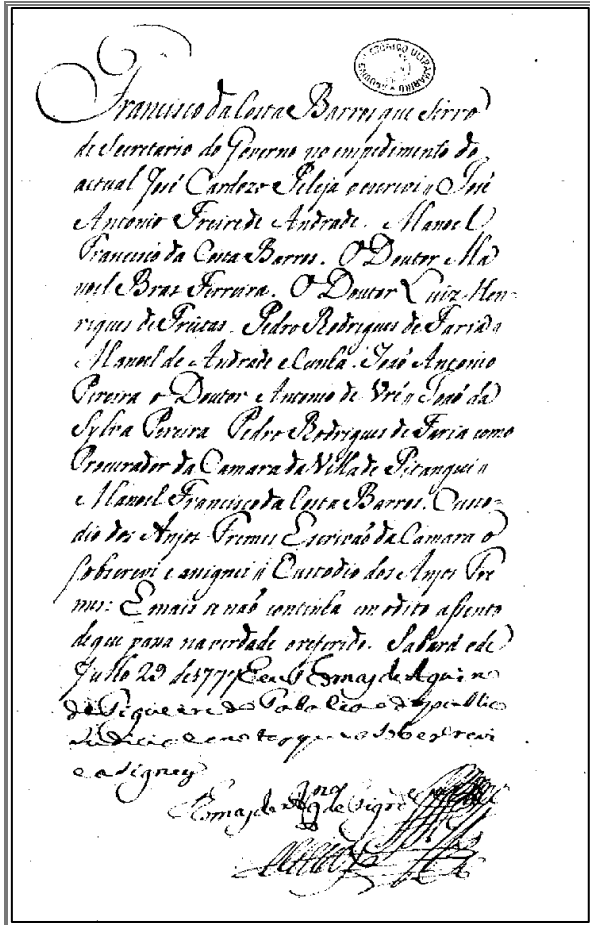 ARQUIVO HISTÓRICO ULTRAMARINO
Francisco da Costa Barros que Sirvo
de Secretario do Governo no empedimento do
actual José Cardozo Peleja o escrevi // José
Antonio Freire de Andrade. Manoel
Francisco da Costa Barros. O Doutor Ma
noel Bras Ferreira. O Doutor Luiz Hen-
riques de Freitas. Pedro Rodrigues de Faria //
Manoel de Andrade e Cunha. João Antonio
Pereira o Doutor Antonio de // João da
Sylva Pereira Pedro Rodrigues de Faria como
Procurador da Camara da Villa de Pitangui //
Manoel Francisco da Costa Barros. Custo-
dio dos Anjos Escrivaõ da Camara o
sobscrevi e asignei // Custodio dos Anjos
E mais se naõ continha em o dito assento
de que passa na verdade o referido. Sabará e de
Julho 29 de 177 E eu Tomas de Aquin
de Tabaliao do publico
Judicial e notas que o sobescrevi
e asigney
Tomas de